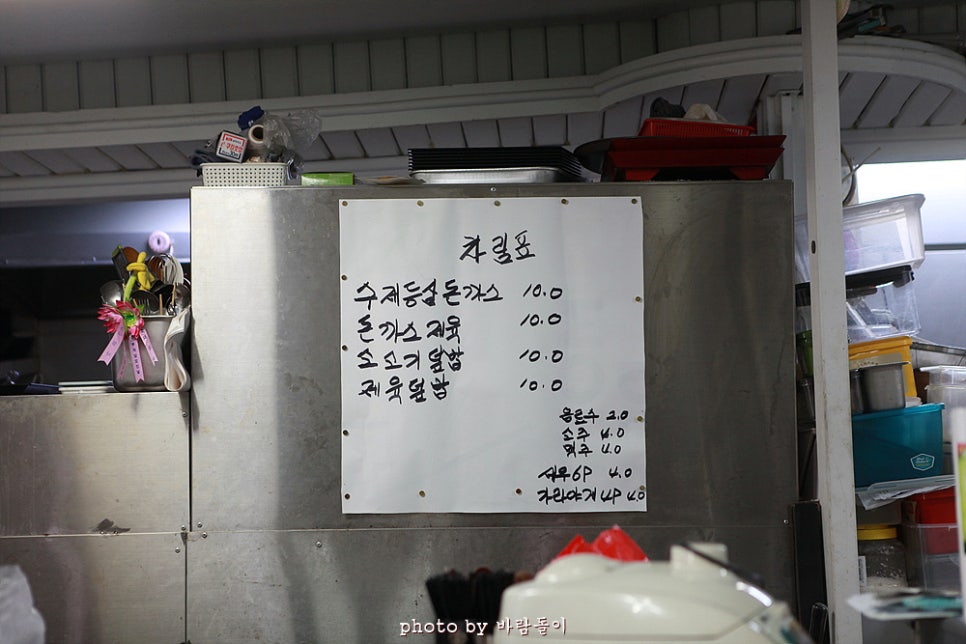 차림표
수제등심돈가스 10.0
돈가스제육 10.0
소소기덮밥 10.0
제육덮밥 10.0
음료수 2.0
소주 4.0
맥주 4.0
새우6P 4.0
가라아게 4P 4.0
photo by 바람돌이